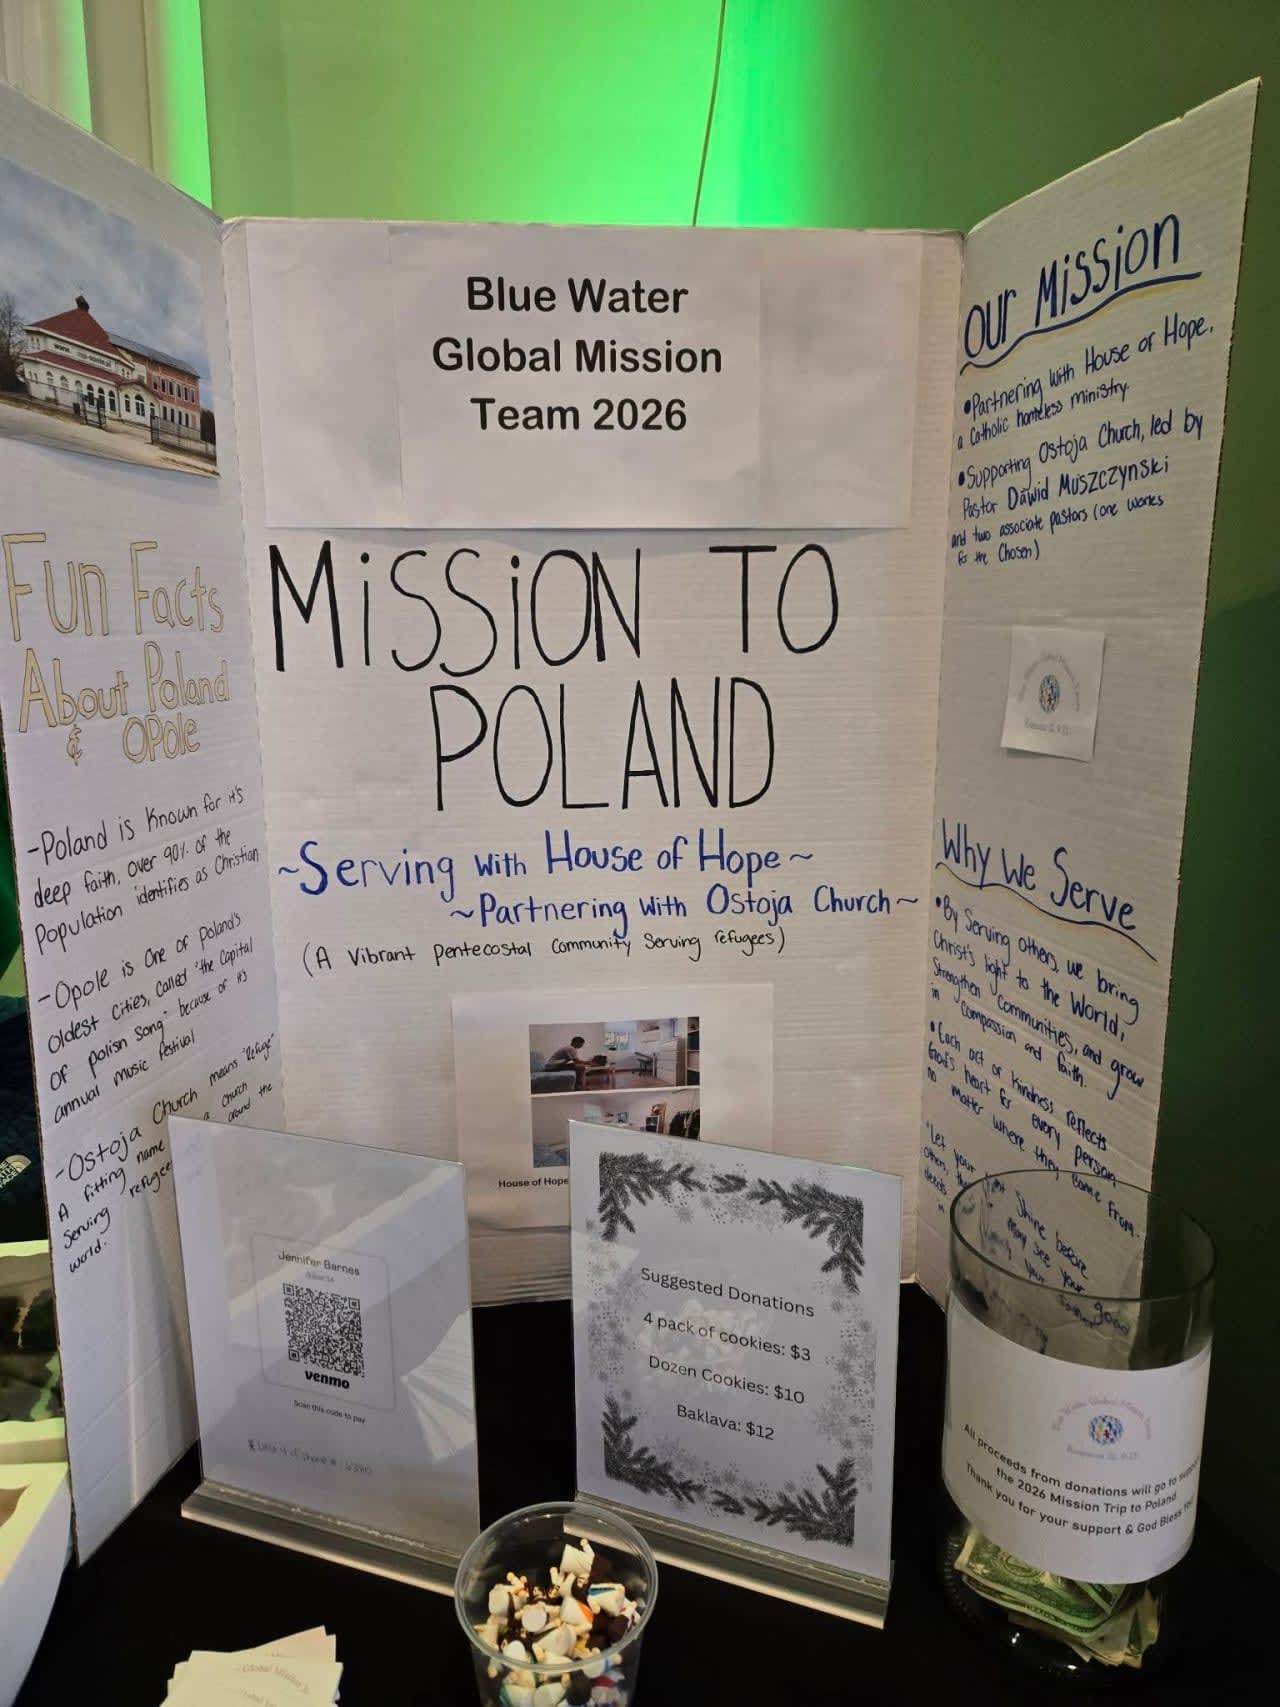 Blue Water
Global Mission
Team 2026
MiSSiON TO
POLAND
~Serving With House of Hope~
~Partnering With Ostoja Church~
(A Vibrant Pentecostal Community Serving refugees)
House of Hope
Fun Facts
About Poland
& OPole
-Poland is Known for it's
deep faith, over 90% of the
population identifies as Christian
-Opole is One of Poland's
oldest Cities, Called "the Capital
of polish Song" because of it's
annual music festival
-Ostoja Church means "Refuge"
A fitting name a church
Serving refugee around the
world.
Our Mission
•Partnering With House of Hope,
a Catholic homeless ministry.
•Supporting Ostoja Church, led by
Pastor Dawid Muszczynski
and two associate pastors (one works
for the Chosen)
Why We Serve
•By Serving others, we bring
Christ's light to the World,
Strengthen Communities, and grow
in Compassion and faith.
•Each act of kindness reflects
God's heart for every person
no matter where they come from.
•Let your light Shine before
others, may see your good
deeds your
in
Jennifer Barnes
venmo
Scan this code to pay
Suggested Donations
4 pack of cookies: $3
Dozen Cookies: $10
Baklava: $12
All proceeds from donations will go to support
the 2026 Mission Trip to Poland
Thank you for your support & God Bless
Global Mission